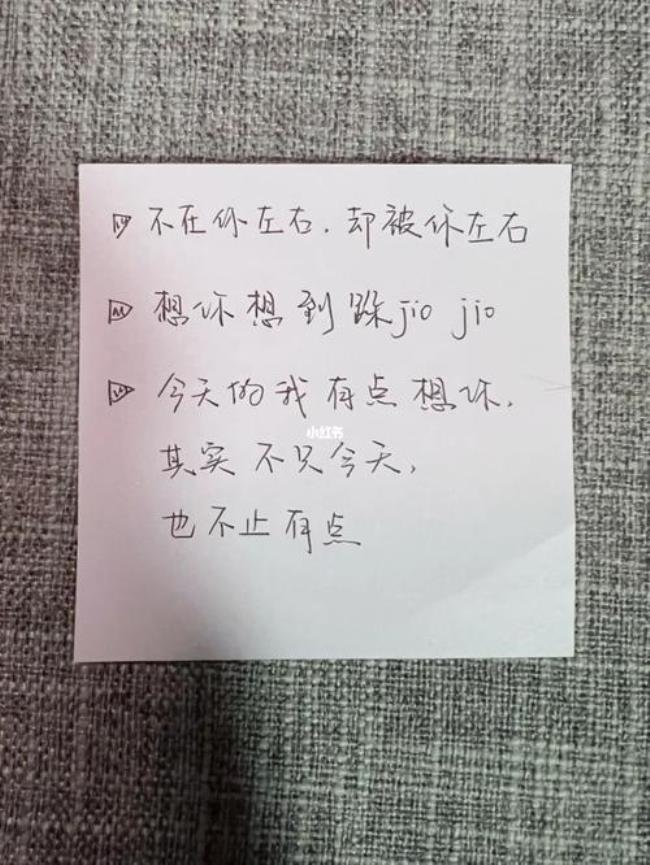 不在你左右.却被你左右
想你想到跺jio jio
今天的我有点想你,
小红书
其实不只今天,
也不止有点